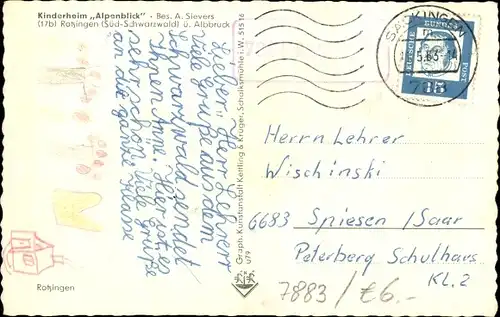 Kinderheim „Alpenblick" · Bes. A. Sievers
(17b) Rotzingen (Süd-Schwarzwald) ü. Albbruck
Lieber Herr Lehrer
viele Grüße aus dem
Schwarzwald sendet
Ihnen Anne. Hier ist es
sehr schön. Viele Grüße
an die ganze Klasse
Rotzingen
Graph. Kunstanstalt Kettling & Krüger, Schalksmühle i. W. 51516
U79
SÄCKINGEN
DEUTSCHE
BUNDES
POST
15
Herrn Lehrer
Wischinski
6683 Spiesen /Saar
Peterberg Schulhaus
Kl. 2
7883/€6.-